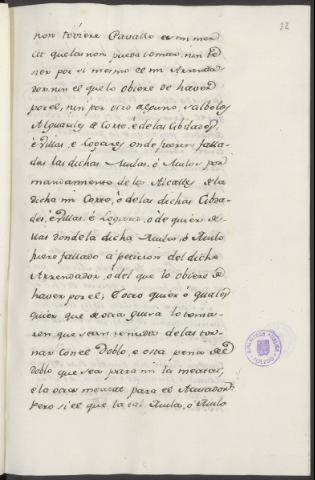 32
non toviere Cavallo es mi mer
cet que las non pueda tomar, nin te
ner por si mesmo el mi Arrenda
dor, nin el que lo obiere de haver
por el, nin por otro alguno, salbo los
Alguaciles de Corte, é de las Cibdades,
é Villas, é Logares onde fueren falla
das las dichas Mulas, ó Mulos por
mandamiento de los Alcalles de la
dicha mi Corte, ó de las dichas Cibda
des, é Villas, é Logares, ó de quier de
llas donde la dicha Mula, ó Mulo
fuere fallado á peticion del dicho
Arrendador, ó del que lo obiere de
haver por el, é otro quier ó quales
quier que de otra guisa lo toma
ren que sean tenudos de las tor
nar con el Doblo, e esta pena del
Doblo que sea para mi la meatad,
e la otra meatad para el Acusador.
Pero si el que la tal Mula, ó Mulo
BIBLIOTECA PUBLICA
TOLEDO